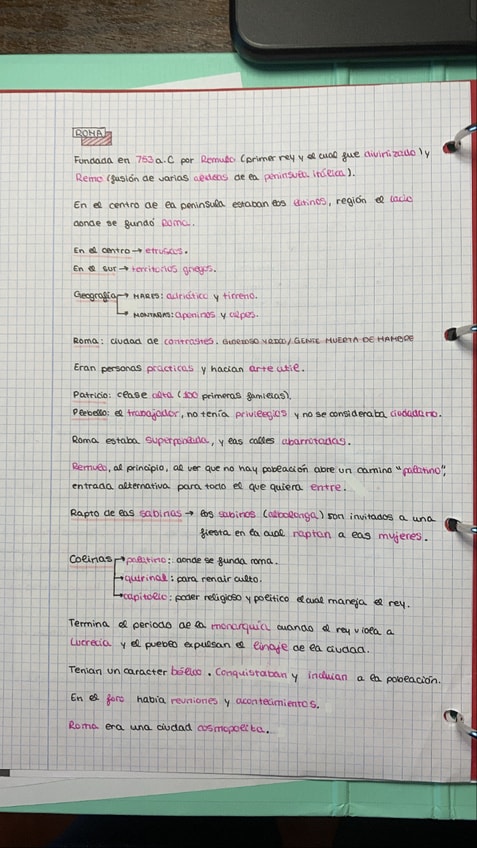 ROMA
Fundada en 753 a.C por Remulo (primer rey y el cual fue divinizado) y
Remo (fusión de varias aldeas de la península itálica).
En el centro de la península estaban los latinos, región el lacio
donde se fundó Roma.
En el centro → etrusas.
En el sur → territorios griegos.
Geografía → MARES: adriático y tirreno.
→ MONTAÑAS: apeninos y alpes.
Roma: ciudad de contrastes. GENTE MUERTA DE HAMBRE
Eran personas practicas y hacían arte util.
Patricio: clase alta (100 primeras familias).
Plebello: el trabajador, no tenía privilegios y no se consideraba ciudadano.
Roma estaba superpoblada, y las calles abarrotadas.
Remulo, al principio, al ver que no hay población abre un camino "palatino",
entrada alternativa para todo el que quiera entre.
Rapto de las sabinas → los sabinos (albalonga) son invitados a una
fiesta en la cual raptan a las mujeres.
Colinas → palatino: donde se funda roma.
→ quirinal: para rendir culto.
→ capitolio: poder religioso y politico el cual maneja el rey.
Termina el periodo de la monarquía cuando el rey viola a
Lucrecia y el pueblo expulsan el linaje de la ciudad.
Tenian un caracter bélico. Conquistaban y incluian a la población.
En el foro había reuniones y acontecimientos.
Roma era una ciudad cosmopolita.